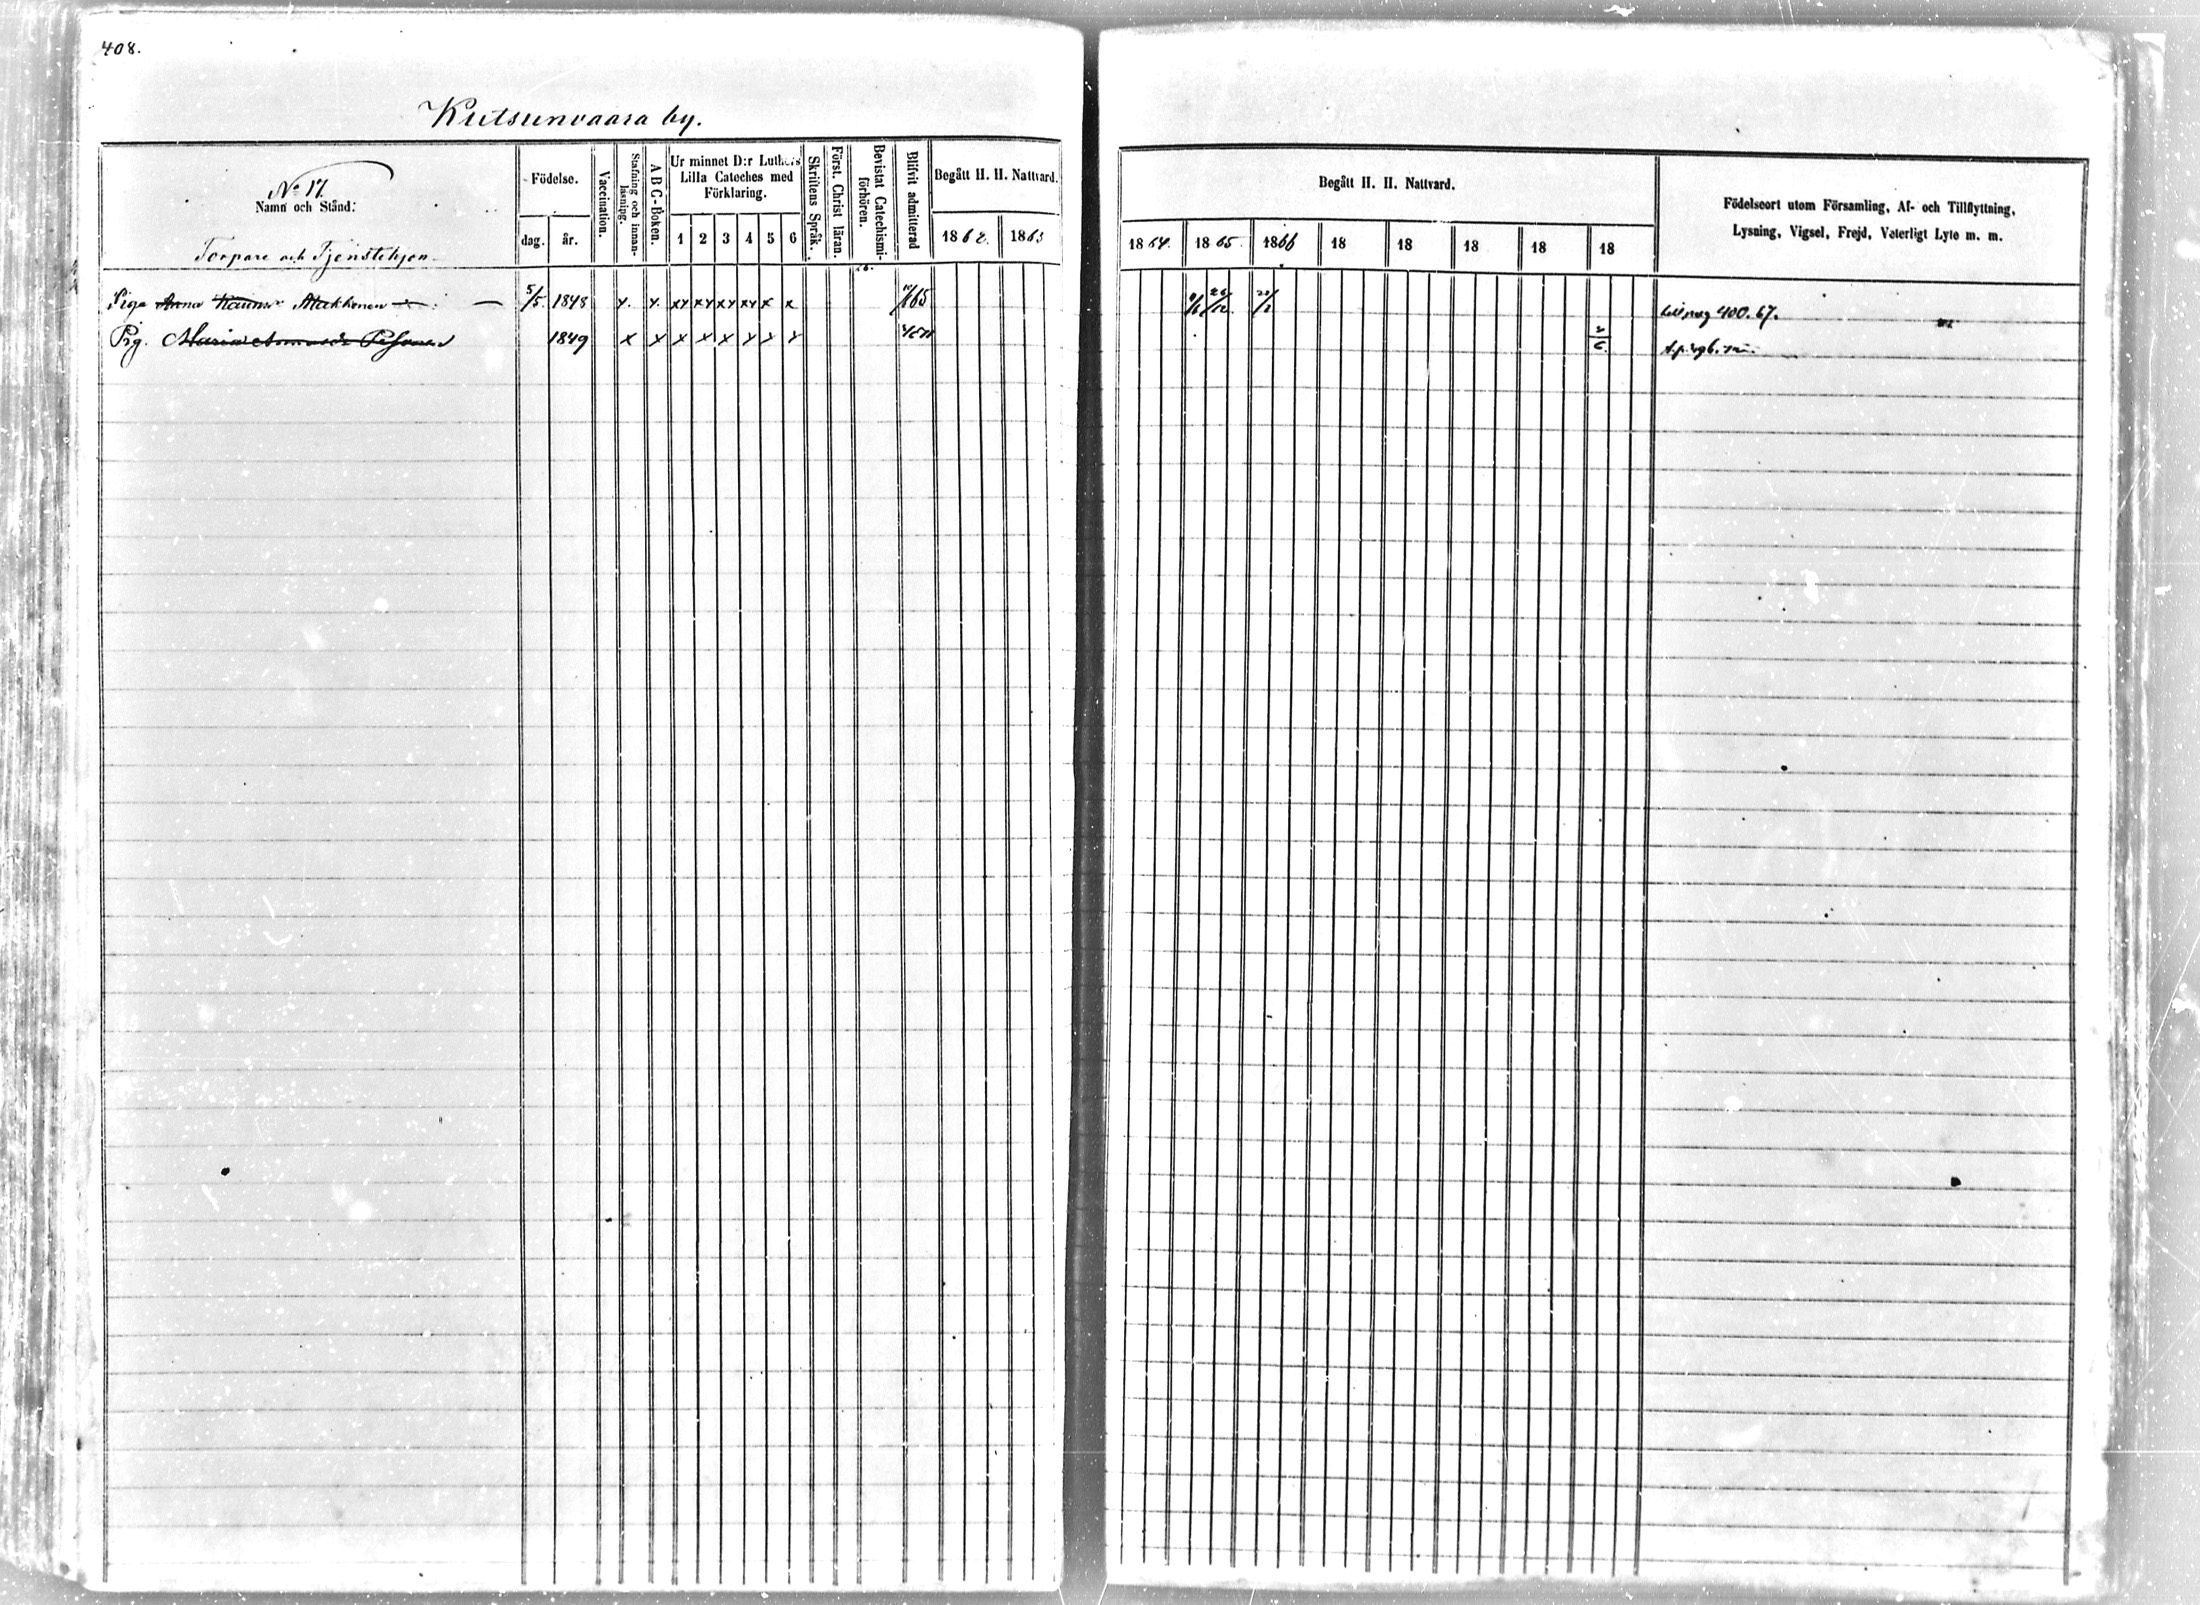 408.
Kutsunvaara by.
No 17.
Namn och Stånd:
Torpare och Tjenstehjon.
Födelse.
dag. år.
Vaccination.
Stafning och innanläsning.
A B C-Boken.
Ur minnet D:r Luthers
Lilla Cateches med
Förklaring.
1 2 3 4 5 6
Skriftens Språk.
Först. Christ läran.
Bevistat Catechismi-
förhören.
Blifvit admitterad
Begått H. H. Nattvard.
1862. 1863
Begått H. H. Nattvard.
1864. 1865. 1866 18 18 18 18 18
Födelseort utom Församling, Af- och Tillflyttning,
Lysning, Vigsel, Frejd, Veterligt Lyte m. m.
Piga Anna 5/5. 1848 x. x. xx xx xx xx x x 65 26/12 400.67.
Pig. Maria 1849 x x x x x x x x 2/6